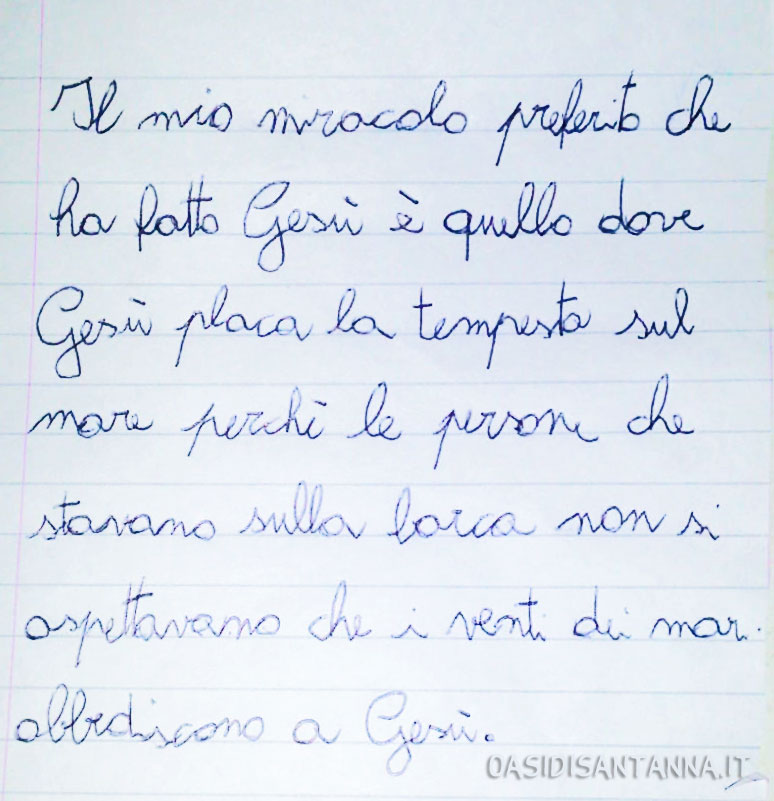 Il mio miracolo preferito che
ha fatto Gesù è quello dove
Gesù placa la tempesta sul
mare perchè le persone che
stavano sulla barca non si
aspettavano che i venti dei mari
obbediscono a Gesù.
OASIDISANTANNA.IT